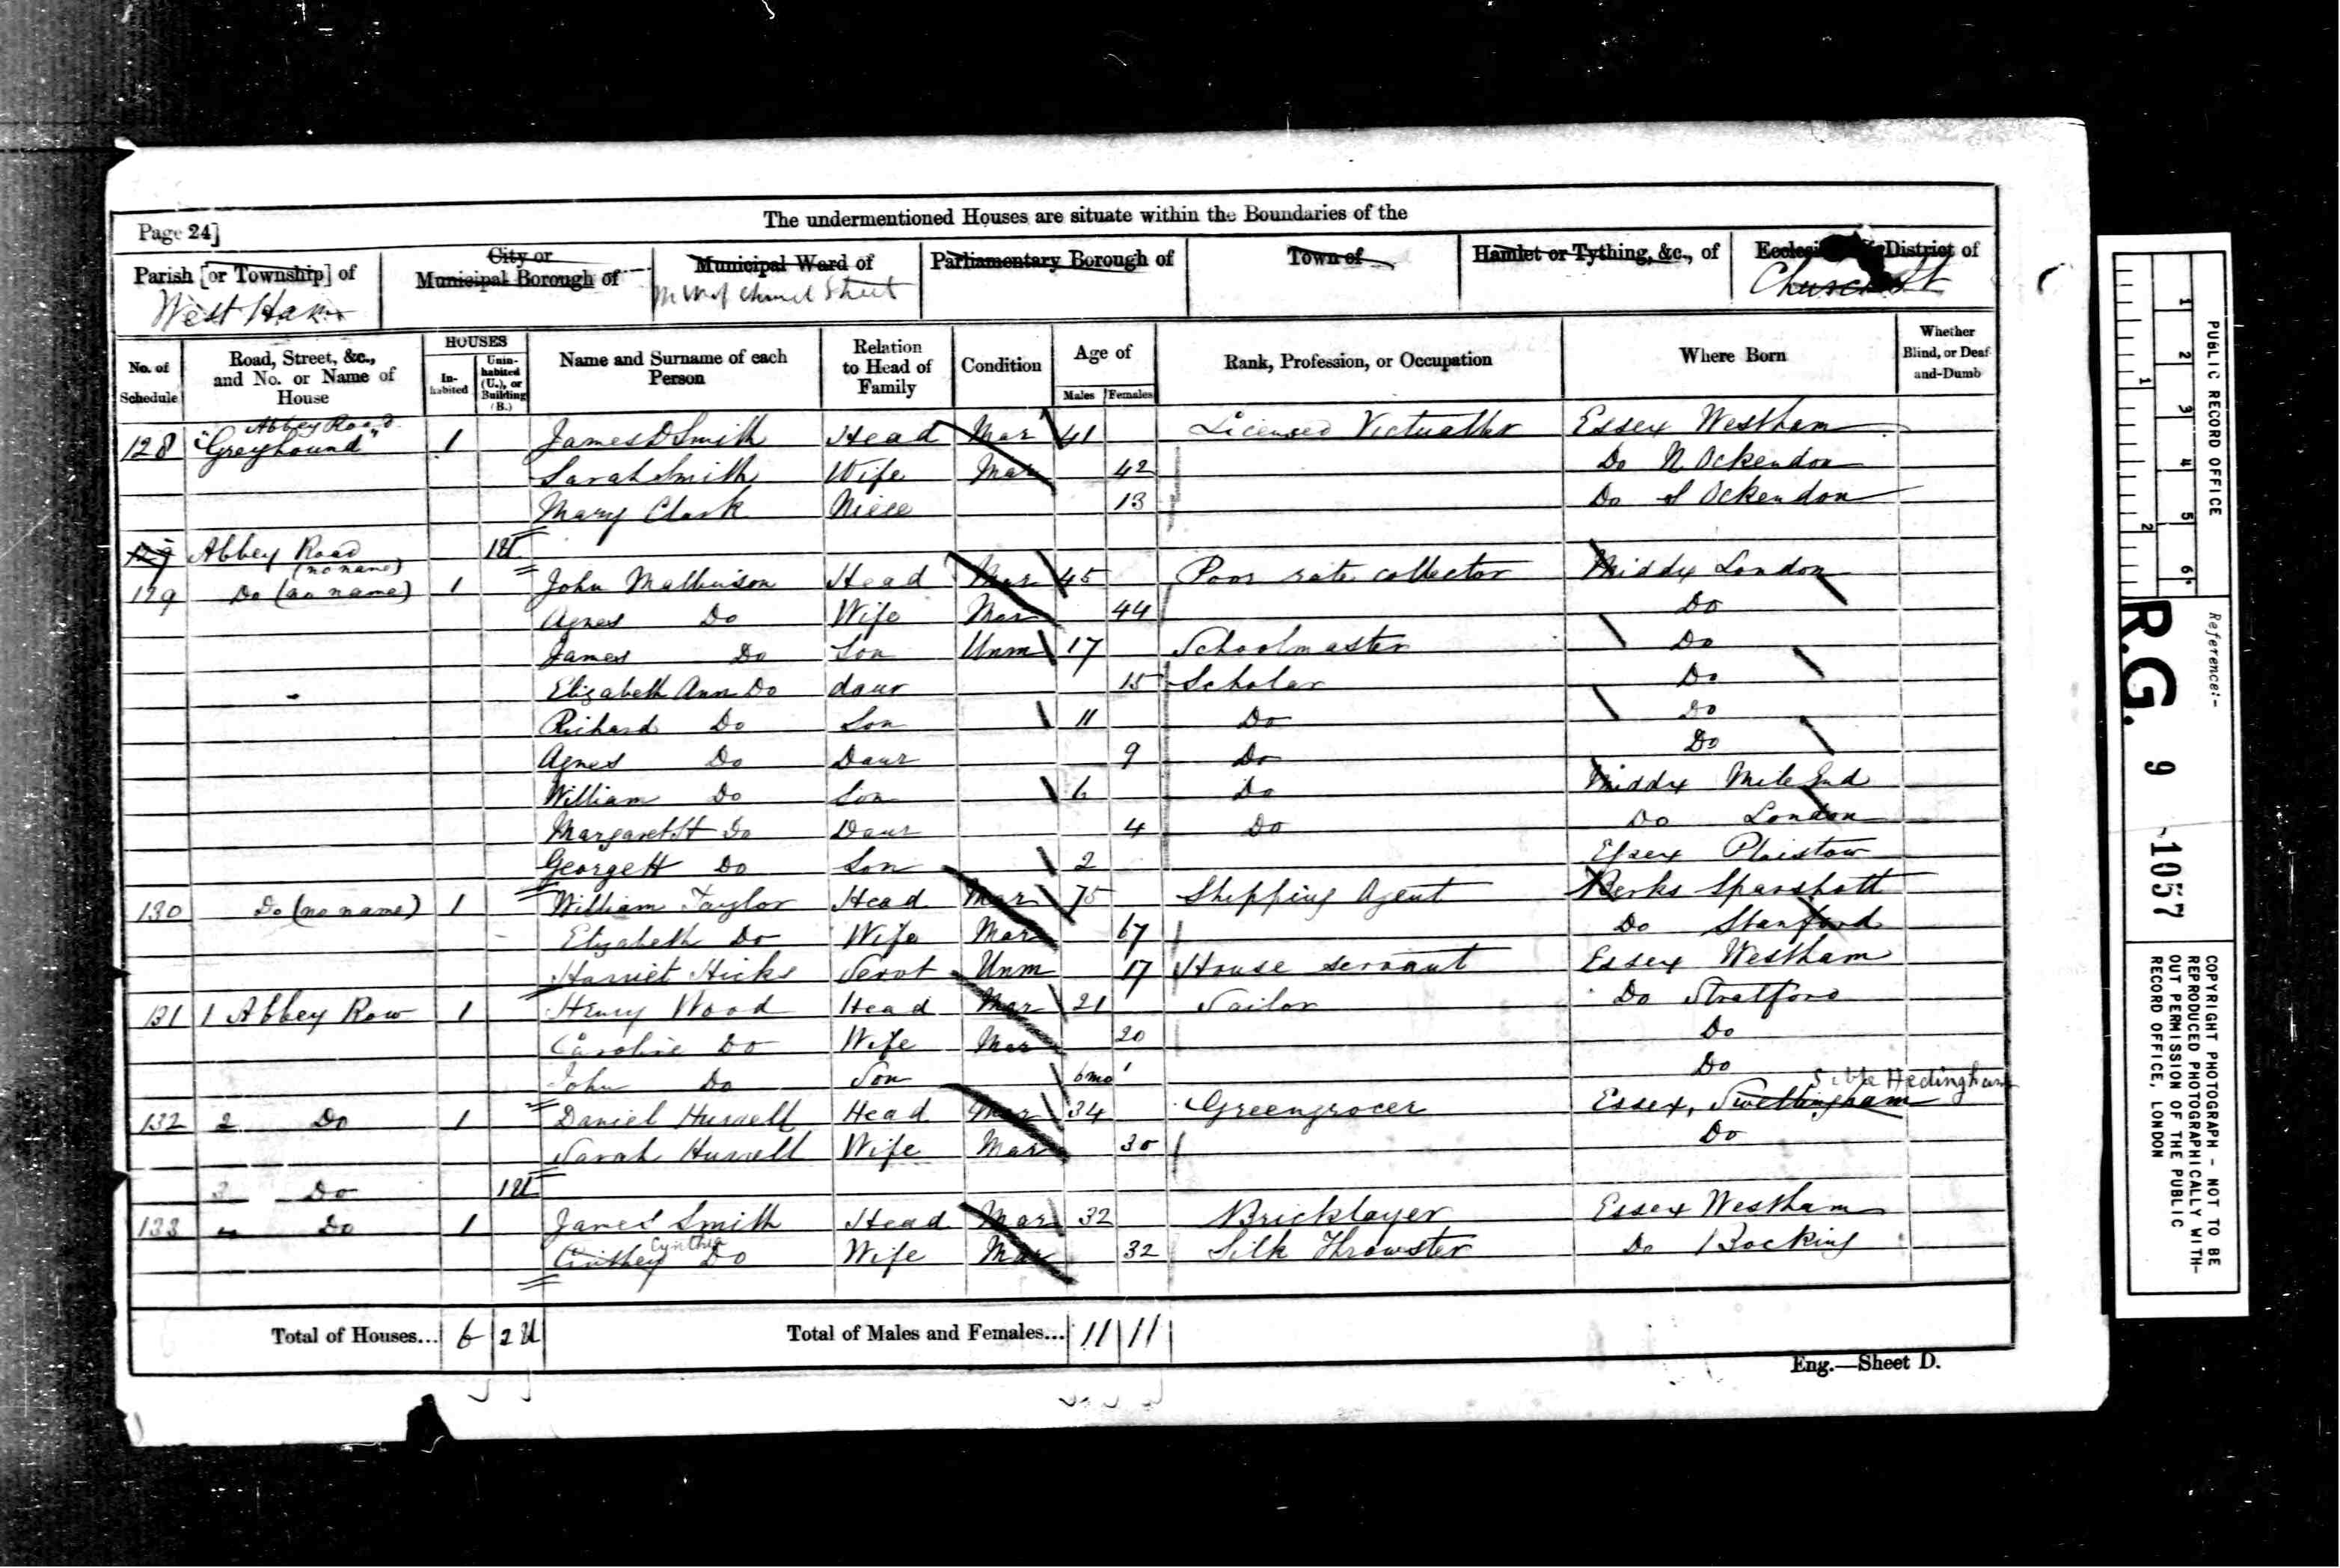 The undermentioned Houses are situate within the Boundaries of the
Page 24]
Parish [or Township] of West Ham
City or Municipal Borough of
Municipal Ward of
Parliamentary Borough of
Town of
Hamlet or Tything, &c., of
District of
No. of Schedule
Road, Street, &c., and No. or Name of House
HOUSES
In-habited
Unin-habited (U.), or Building (B.)
Name and Surname of each Person
Relation to Head of Family
Condition
Age of
Males
Females
Rank, Profession, or Occupation
Where Born
Whether Blind, or Deaf-and-Dumb
Abbey Road
128 "Greyhound" 1 James D Smith Head Mar 41 Licensed Victualler Essex Westham
Sarah Smith Wife Mar 42 Do N Ockendon
Mary Clark Niece 13 Do S Ockendon
129 Abbey Road 1U
(no name)
129 Do (no name) 1 John Mathieson Head Mar 45 Poor rate collector Middx London
Agnes Do Wife Mar 44 Do
James Do Son Unm 17 Schoolmaster Do
Elizabeth Ann Do daur 15 Scholar Do
Richard Do Son 11 Do Do
Agnes Do Daur 9 Do Do
William Do Son 6 Do Middx Mile End
Margaret H Do Daur 4 Do Do London
George H Do Son 2 Essex Plaistow
130 Do (no name) 1 William Taylor Head Mar 75 Shipping Agent Berks Sparshott
Elizabeth Do Wife Mar 67 Do Stanford
Harriet Hicks Servt Unm 17 House servant Essex Westham
131 1 Abbey Row 1 Henry Wood Head Mar 21 Sailor Do Stratford
Caroline Do Wife Mar 20 Do
John Do Son 6mo Do
Sible Hedingham
132 2 Do 1 Daniel Hurrell Head Mar 34 Greengrocer Essex, Swellingham
Sarah Hurrell Wife Mar 30 Do
3 Do 1U
133 Do 1 James Smith Head Mar 32 Bricklayer Essex Westham
Cynthia
Cinthey Do Wife Mar 32 Silk Throwster Do Bocking
Total of Houses... 6 2U
Total of Males and Females... 11 11
Eng.—Sheet D.
PUBLIC RECORD OFFICE
1 2 3 4 5 6
1 2
Reference:-
R.G. 9 1057
COPYRIGHT PHOTOGRAPH - NOT TO BE
REPRODUCED PHOTOGRAPHICALLY WITH-
OUT PERMISSION OF THE PUBLIC
RECORD OFFICE, LONDON